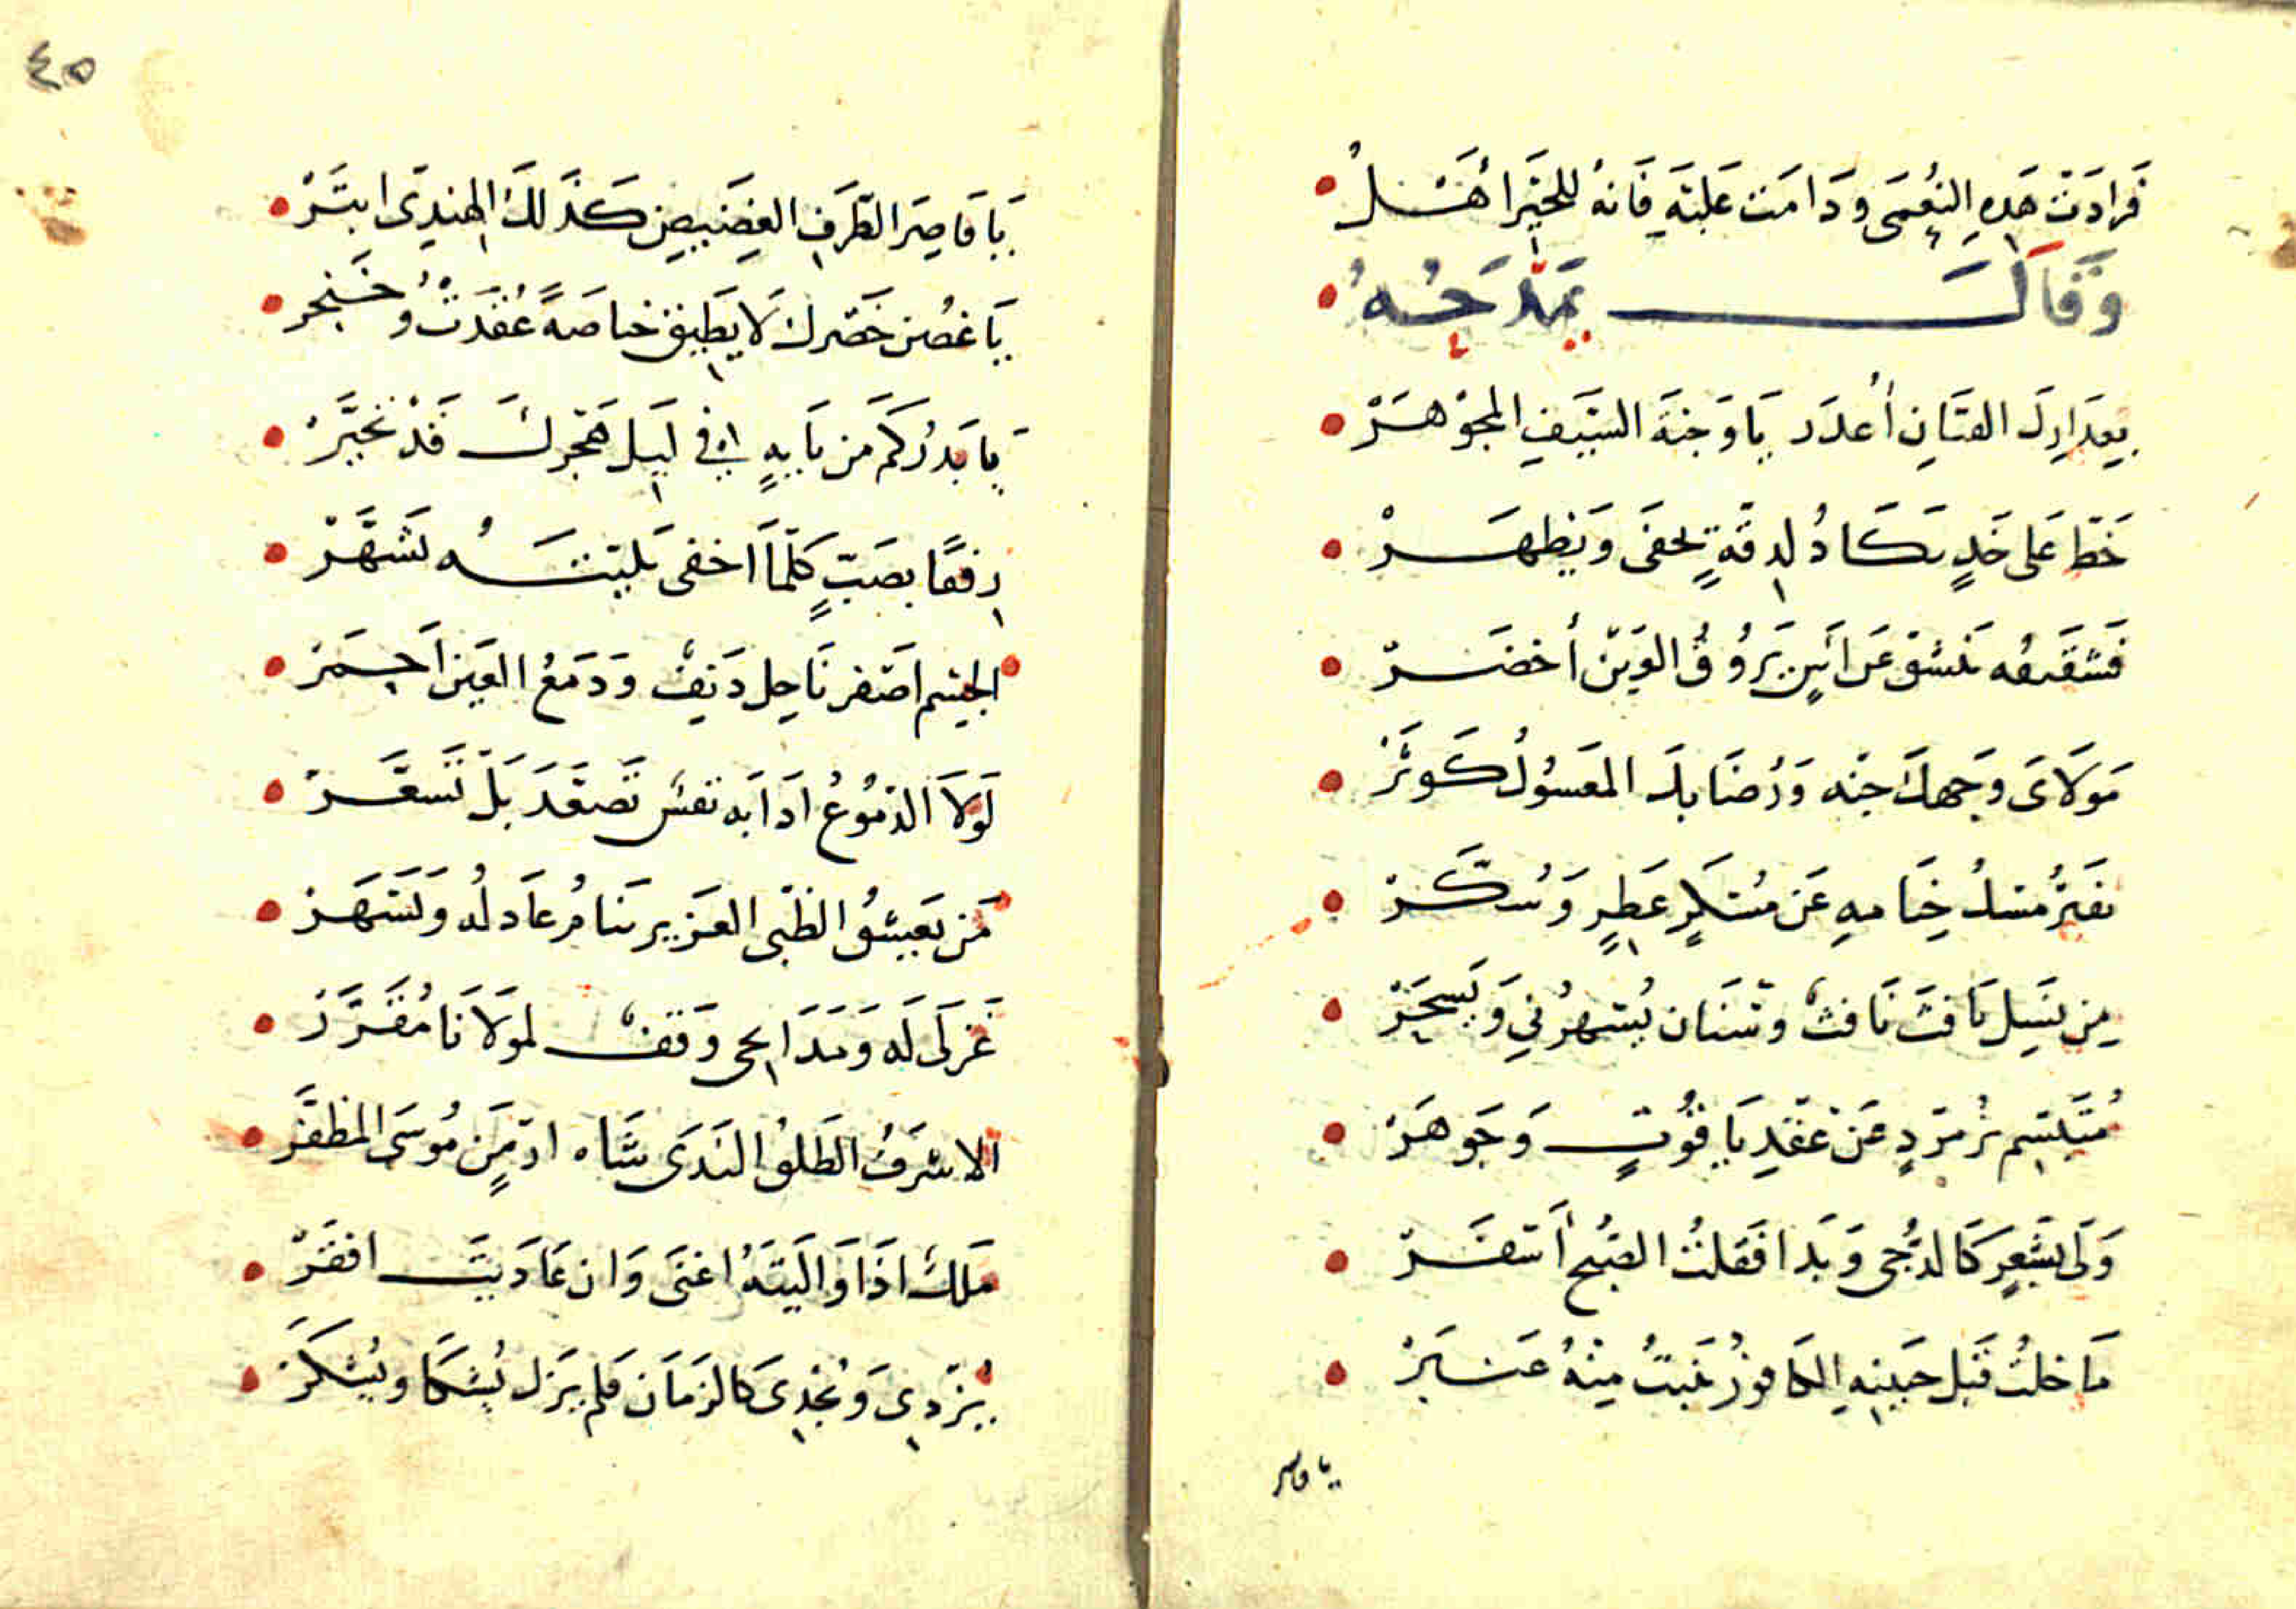 فَزادَتْ هَذِهِ النُعْمَى وَدَامَت عَلَيْهِ فَانهُ للخَيْرِ أهْــلُ
وَقَالَ يَمْدَحُهُ
بعِذَارِكَ الفتَانِ أعذَر يَا وَجْنَة السَّيْفِ المجَوْهَرْ
خَطّ عَلى خَدٍ يَكَادُ لِدقّةٍ يخفَى وَيَظهَــرْ
فَشقيقه يَنشقّ عَن آسٍ يَرُوقُ العَيْن أخضَــرّ
مَولَاىَ وَجهكَ جنّه وَرُضَابكَ المعَسُولُ كَوثَرْ
يَفتَرُّ مِسكُ خِتَامِهِ عَن مُسْكَرٍ عَطِرٍ وَسُكَّــرْ
مِن نَسِل يَافثَ نَافثٌ وَسْنَان يُسْهرُنِي وَيَسحَرْ
مُتَبَسّم زُمرّدٍ عَنْ عِقْدِ يَاقُوتٍ وَجَوهَرْ
وَلّى بشَعرٍ كَالدُّجى وَبَدا فَقلتُ الصُبح أَسْفَــرْ
مَا خلتُ قَبل جَبينهِ الكافورُ يَنبتُ مِنْهُ عَنــبَرْ
يا قاصر
يَا قَاصِرَ الطَّرفِ الغضِيضِ كَذَلكَ الهِندِى ابتَرْ
يَا غُصْن خَصْرك لَا يطِيق خنَاصَةً عُقدَتْ وخَنجر
يَا بَدرُ كَم مَن تَايِهٍ في لَيل هَجْركَ قَدْ تحَيَّرْ
رِفقًا بصَبّ كلّمَا اَخفى تَلبّسَــهُ تَشَهَّرْ
الجِسْم اصْفر نَاحِل دَنِفٌ وَدَمْعُ العَين اَحمَرْ
لَولَا الدُمُوعُ اذابه نَفَسٌ تَصَعَّدَ بَلْ تَسَعَّــرْ
مَن يَعشقُ الظَبْى الغَرِير يَنَامُ عَاذلهُ وَيَسْهَرْ
غَزَلى لَهُ وَمَدَايحى وَقفٌ لمولَانَا مُقَرَّرْ
الاشرَفُ الطَلقُ النَدَى شَاه ارمَنٍ مُوسَى المظفَّر
مَلكٌ اذَا وَاليْتَهُ اغنَى وَان عَادَيتَ افقَرْ
يُرْدِى وَيُجْدِى كالزَمَان فَلم يَزَل يُشكَا وَيُشكَرْ
٤٥